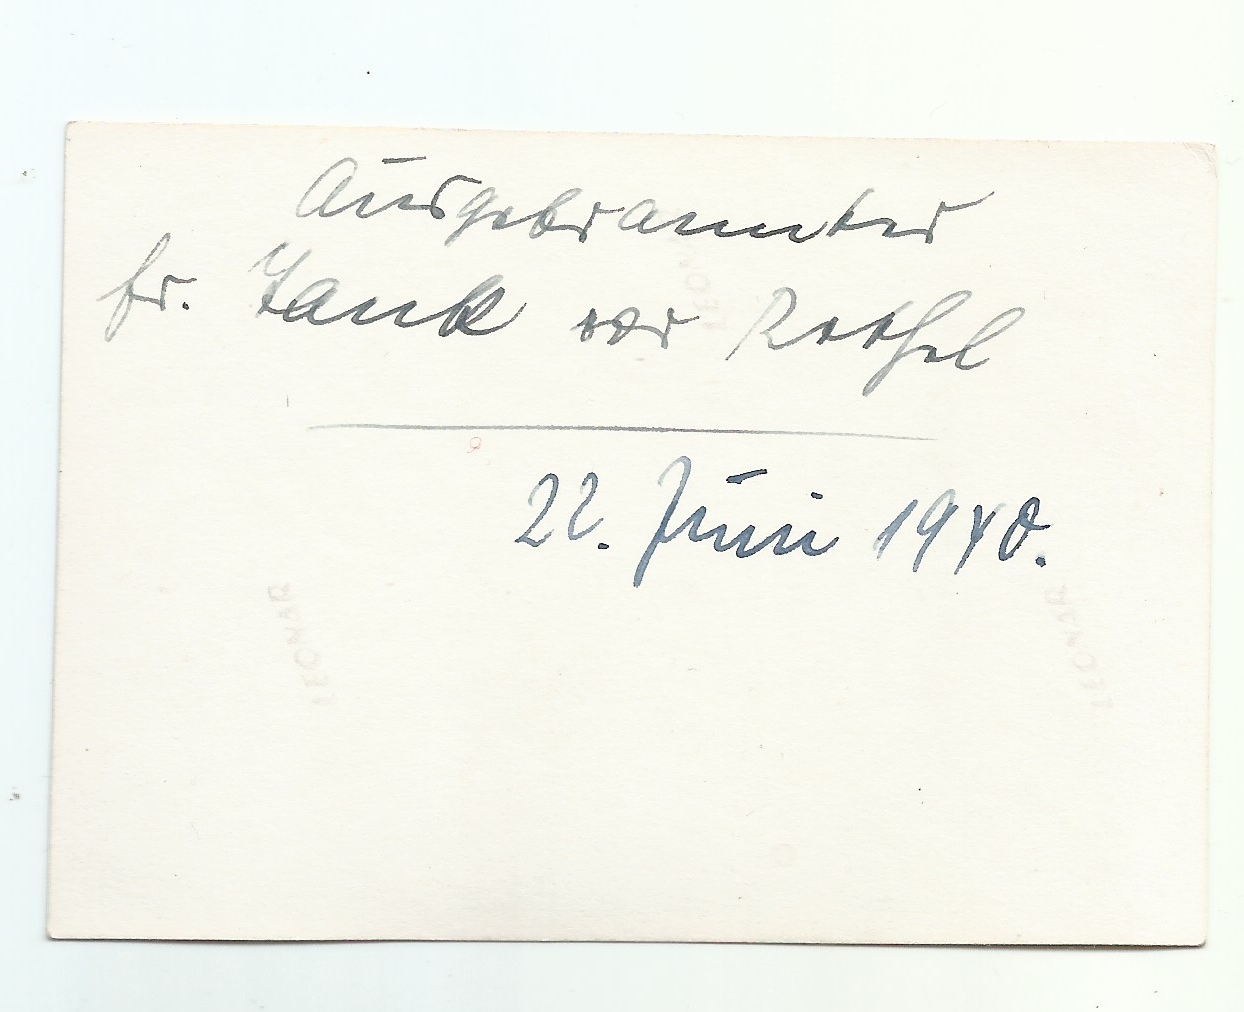 Ausgebrannter
fr. Tank vor Rethel
22. Juni 1940.
LEONAR
LEONAR